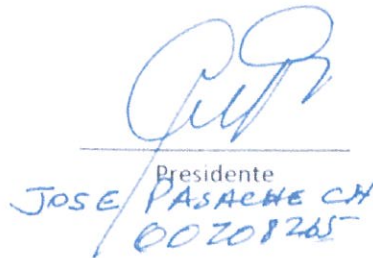 Presidente
JOSE PASACHE CH
00208265